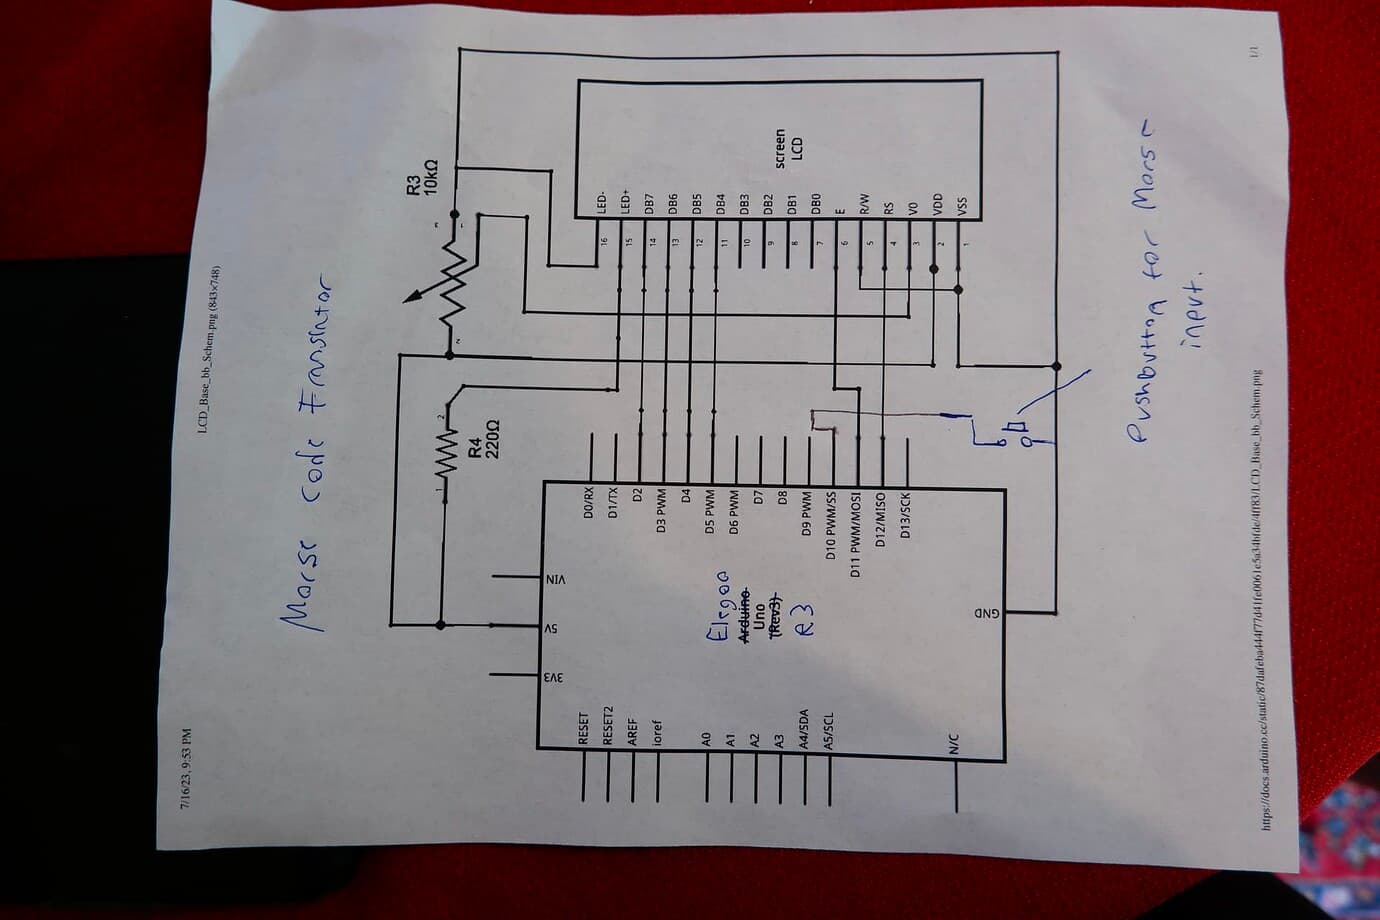 7/16/23, 9:53 PM
LCD_Base_bb_Schem.png (843×748)
Morse Code Translator
R3
10kΩ
3
1
2
R4
220Ω
1
2
screen
LCD
LED-
LED+
DB7
DB6
DB5
DB4
DB3
DB2
DB1
DB0
E
R/W
RS
V0
VDD
VSS
16
15
14
13
12
11
10
9
8
7
6
5
4
3
2
1
D0/RX
D1/TX
D2
D3 PWM
D4
D5 PWM
D6 PWM
D7
D8
D9 PWM
D10 PWM/SS
D11 PWM/MOSI
D12/MISO
D13/SCK
VIN
5V
3V3
GND
Elegoo
Arduino
Uno
(Rev3)
R3
RESET
RESET2
AREF
ioref
A0
A1
A2
A3
A4/SDA
A5/SCL
N/C
Pushbutton for Morse
input.
1/1